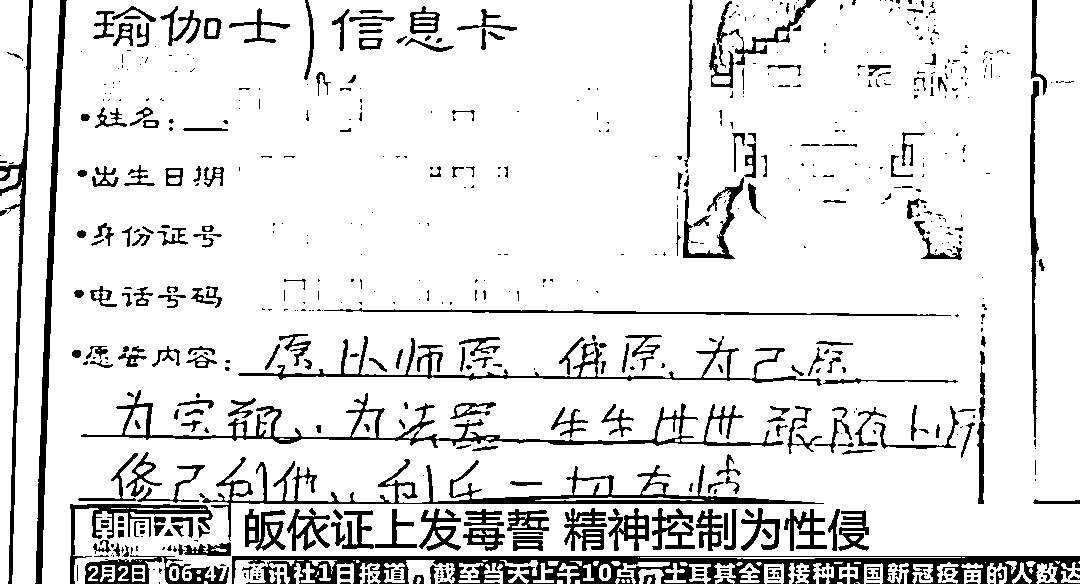 瑜伽士）信息卡
•姓名：
•出生日期
•身份证号
•电话号码
•愿誓内容：愿以师愿、佛愿为己愿
为宝瓶、为法器 生生世世跟随上师
修己利他、利乐一切有情
朝闻天下
皈依证上发毒誓 精神控制为性侵
2月2日 06:47 通讯社1日报道，截至当天上午10点，土耳其全国接种中国新冠疫苗的人数达